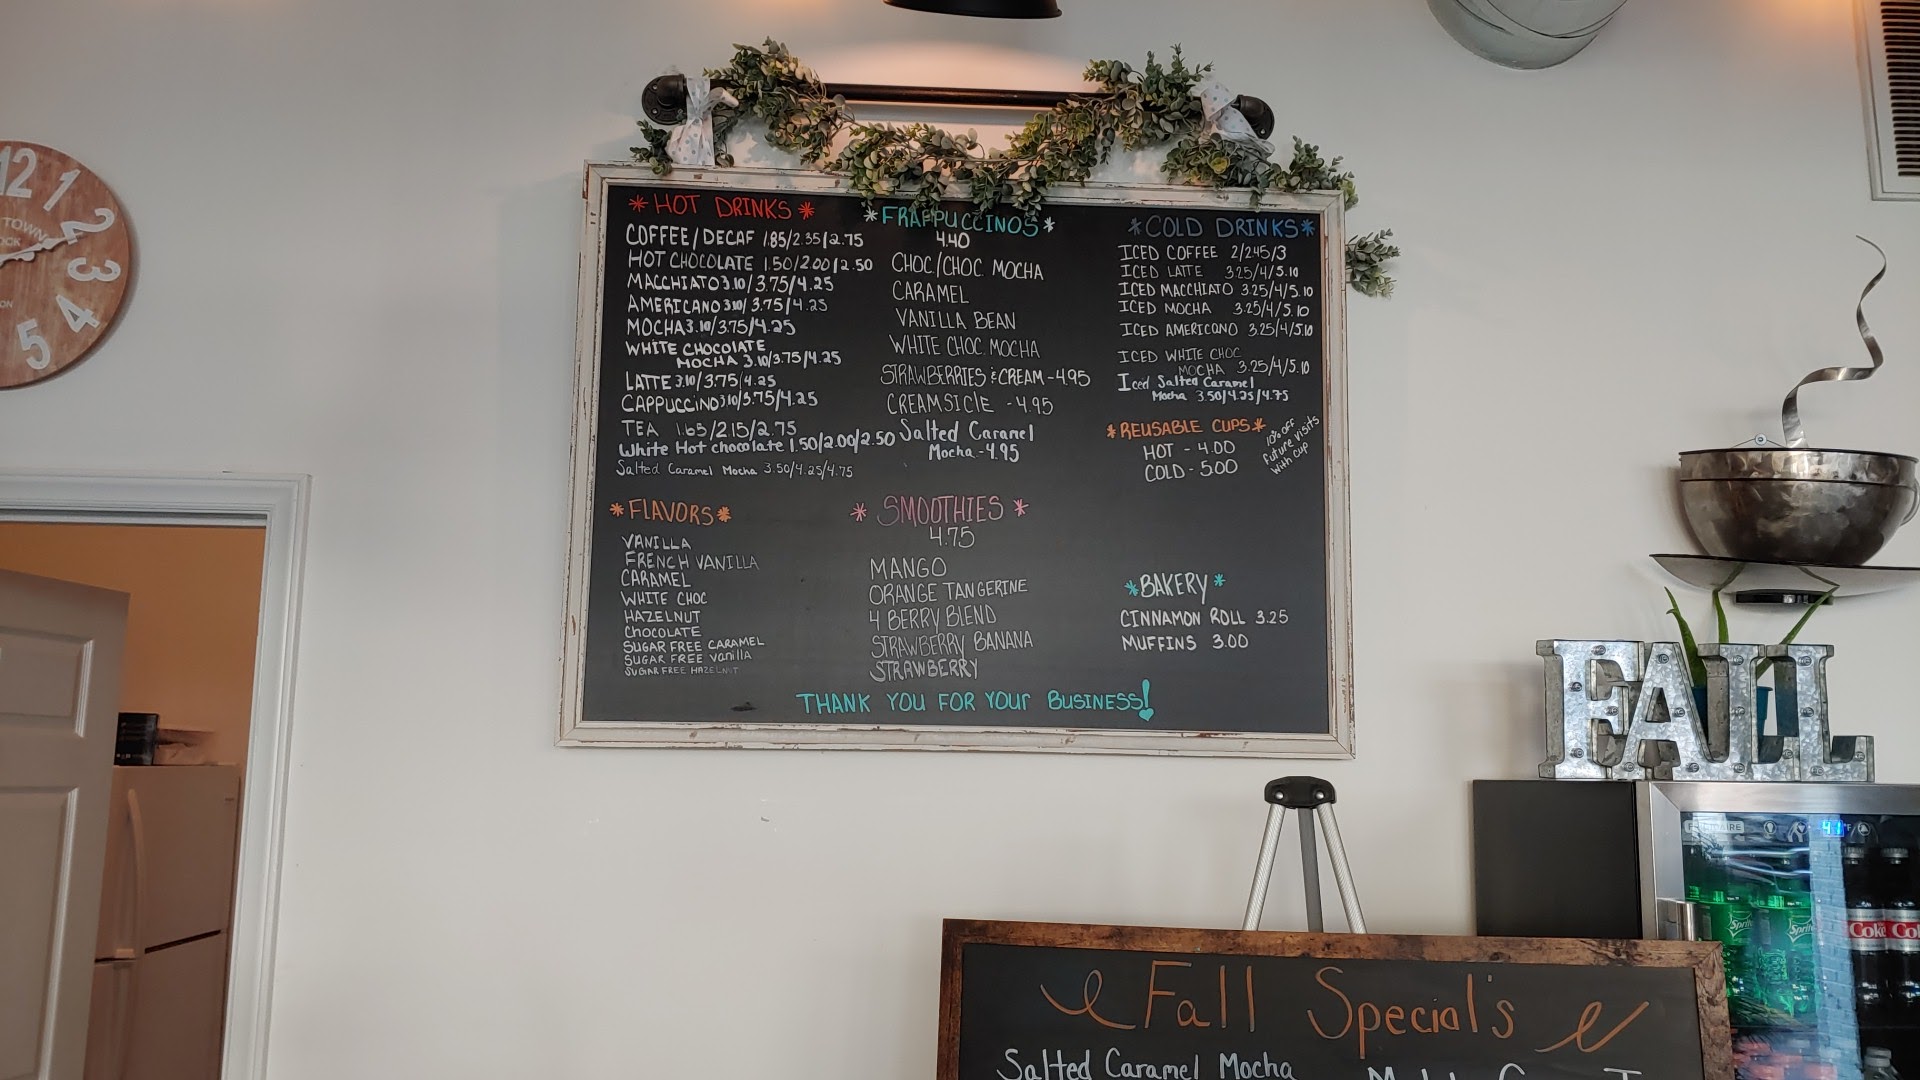 *HOT DRINKS*
COFFEE/DECAF 1.85/2.35/2.75
HOT CHOCOLATE 1.50/2.00/2.50
MACCHIATO 3.10/3.75/4.25
AMERICANO 3.10/3.75/4.25
MOCHA 3.10/3.75/4.25
WHITE CHOCOLATE
MOCHA 3.10/3.75/4.25
LATTE 3.10/3.75/4.25
CAPPUCCINO 3.10/3.75/4.25
TEA 1.65/2.15/2.75
White Hot chocolate 1.50/2.00/2.50
Salted Caramel Mocha 3.50/4.25/4.75
*FLAVORS*
VANILLA
FRENCH VANILLA
CARAMEL
WHITE CHOC
HAZELNUT
CHOCOLATE
SUGAR FREE CARAMEL
SUGAR FREE vanilla
SUGAR FREE HAZELNUT
*FRAPPUCCINO'S*
4.40
CHOC/CHOC. MOCHA
CARAMEL
VANILLA BEAN
WHITE CHOC. MOCHA
STRAWBERRIES & CREAM - 4.95
CREAMSICLE - 4.95
Salted Caramel
Mocha - 4.95
* SMOOTHIES *
4.75
MANGO
ORANGE TANGERINE
4 BERRY BLEND
STRAWBERRY BANANA
STRAWBERRY
*COLD DRINKS*
ICED COFFEE 2/2.45/3
ICED LATTE 3.25/4/5.10
ICED MACCHIATO 3.25/4/5.10
ICED MOCHA 3.25/4/5.10
ICED AMERICANO 3.25/4/5.10
ICED WHITE CHOC
MOCHA 3.25/4/5.10
Iced Salted Caramel
Mocha 3.50/4.25/4.75
*REUSABLE CUPS*
HOT - 4.00
COLD - 5.00
10% OFF
future visits
with cup
*BAKERY*
CINNAMON ROLL 3.25
MUFFINS 3.00
THANK YOU FOR YOUR BUSINESS!
12
1
2
3
4
5
TOWN
FALL
FRIGIDAIRE
41°F
Sprite
Sprite
Coke
Co
Fall Special's
Salted Caramel Mocha